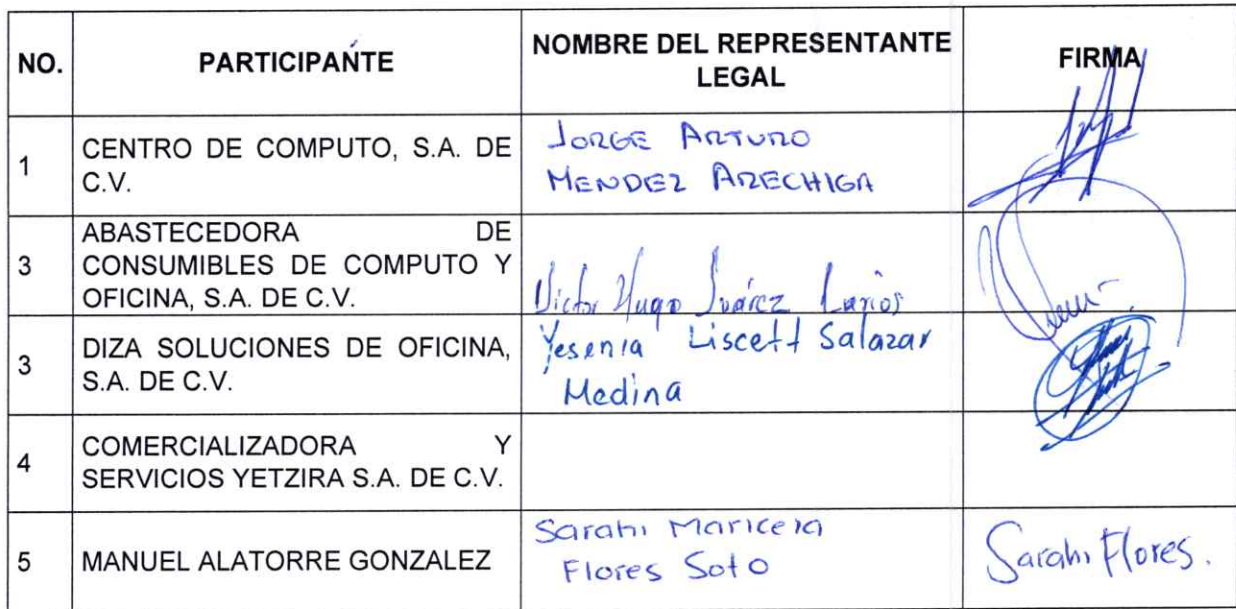 NO. PARTICIPANTE NOMBRE DEL REPRESENTANTE LEGAL FIRMA
1 CENTRO DE COMPUTO, S.A. DE
C.V.
JORGE ARTURO
MENDEZ ARECHIGA
3 ABASTECEDORA DE
CONSUMIBLES DE COMPUTO Y
OFICINA, S.A. DE C.V.
Victor Hugo Suárez Larios
3 DIZA SOLUCIONES DE OFICINA,
S.A. DE C.V.
Yesenia Liscett Salazar
Medina
4 COMERCIALIZADORA Y
SERVICIOS YETZIRA S.A. DE C.V.
5 MANUEL ALATORRE GONZALEZ
Sarahi Maricela
Flores Soto
Sarahi Flores.